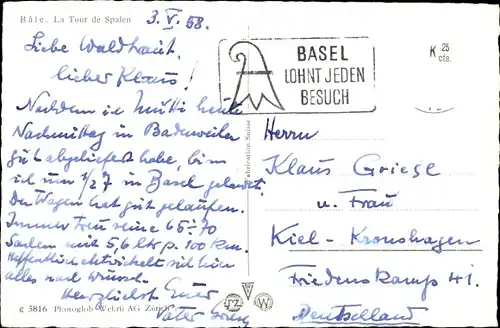 Bâle. La Tour de Spalen
3. V. 58.
Liebe Waldtraut,
lieber Klaus!
Nachdem ich Mutti heute
Nachmittag in Badenweiler
gut abgeliefert habe, bin
ich um 1/27 in Basel gelandet.
Der Wagen hat gut gelaufen.
Immer seine 65-70
Sachen mit 5,6 ltr p. 100 km.
Hoffentlich entwickelt sich hier
alles nach Wunsch.
Herzlichst Euer
Vater
g 3816 Photoglob-Wehrli AG Zürich
Fabrication Suisse
BASEL
LOHNT JEDEN
BESUCH
K 25
cts.
Herrn
Klaus Griese
u. Frau
Kiel-Kronshagen
Friedenskamp 41.
Deutschland